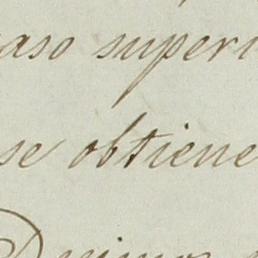 paso superi
se obtiene